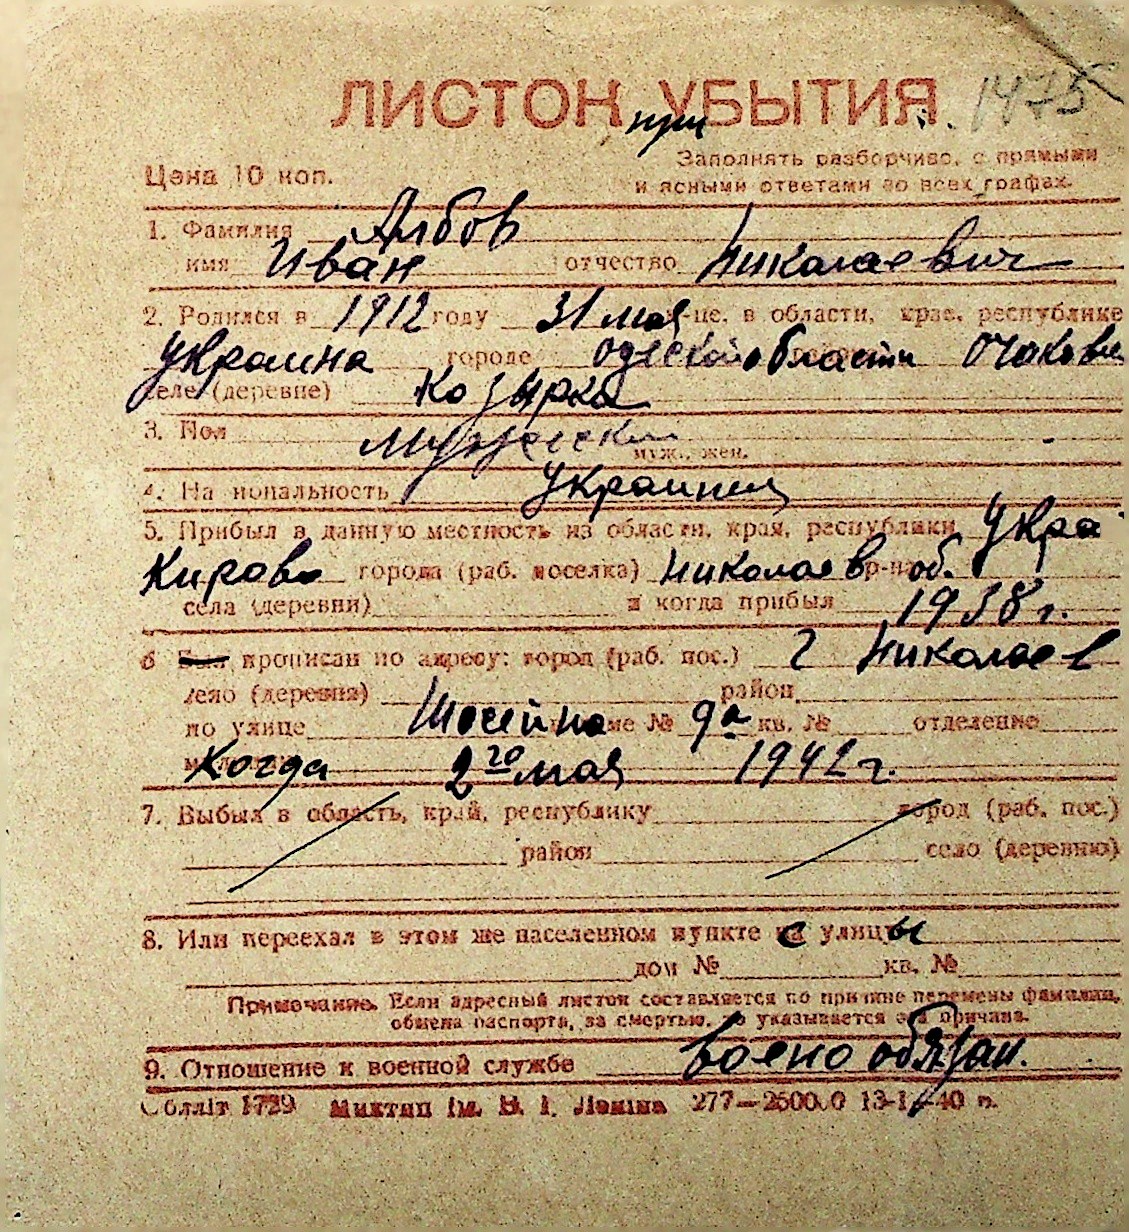 ЛИСТОК УБЫТИЯ 1475
при
Цена 10 коп. Заполнять разборчиво, с прямыми
и ясными ответами во всех графах.
1. Фамилия Албов
имя Иван отчество Николаевич
2. Родился в 1912 году 31 мая р-не, в области, крае, республике
Украина городе Одеской области Очаковск
селе (деревне) Козырка
3. Пол мужеский
муж., жен.
4. Национальность Украинец
5. Прибыл в данную местность из области, края, республики Укра
Кирово города (раб. поселка) Николаев р-на об.
села (деревни) и когда прибыл 1938 г.
6 прописан по адресу: город (раб. пос.) г Николаев
село (деревня) район
по улице Шосейна доме № 9а кв. № отделение
Когда 2го мая 1942 г.
7. Выбыл в область, край, республику город (раб. пос.)
район село (деревню)
8. Или переехал в этом же населенном пункте с улицы
дом № кв. №
Примечание. Если адресный листок составляется по причине перемены фамилии,
обмена паспорта, за смертью, то указывается эта причина.
9. Отношение к военной службе военообязан.
Обллiт 1729 Миктип iм. В. I. Ленiна 277—250000 13-1-40 р.